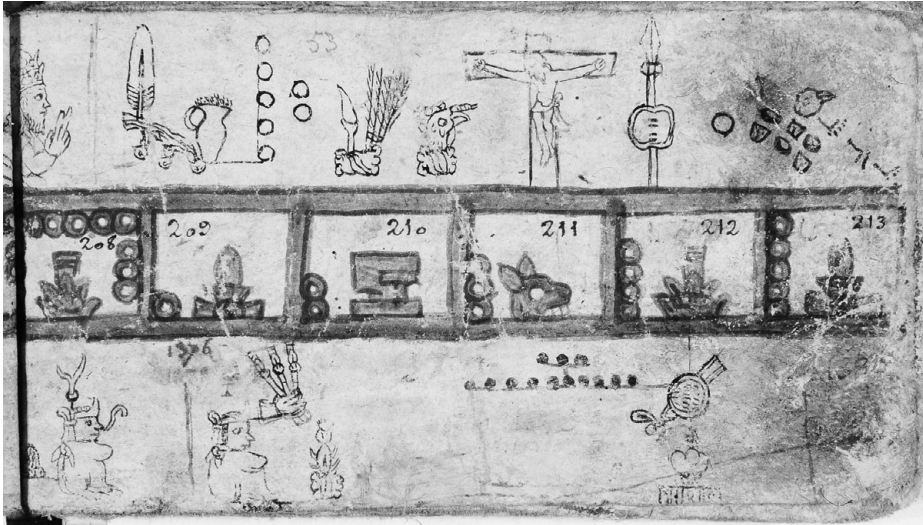 53
208 209 210 211 212 213
1376